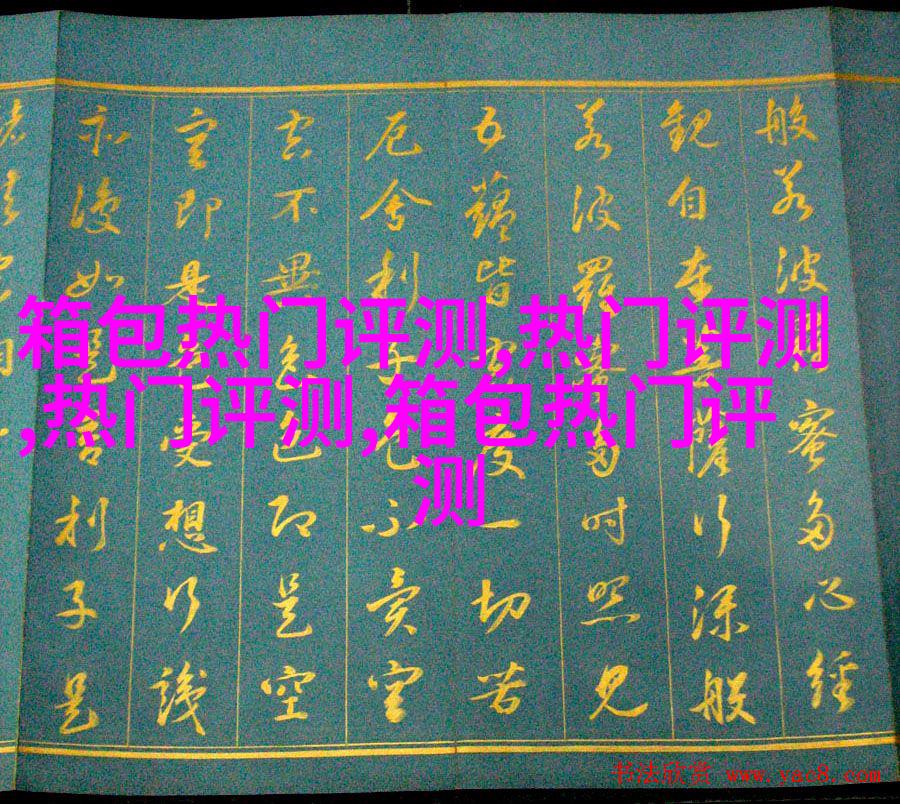 般若波羅蜜多心經
觀自在菩薩行深般
若波羅蜜多時照見
五蘊皆空度一切苦
厄舍利子色不異空
空不異色色即是空
空即是色受想行識
亦復如是舍利子是
箱包热门评测,热门评测
,热门评测,箱包热门评
测
书法欣赏 www.yac8.com